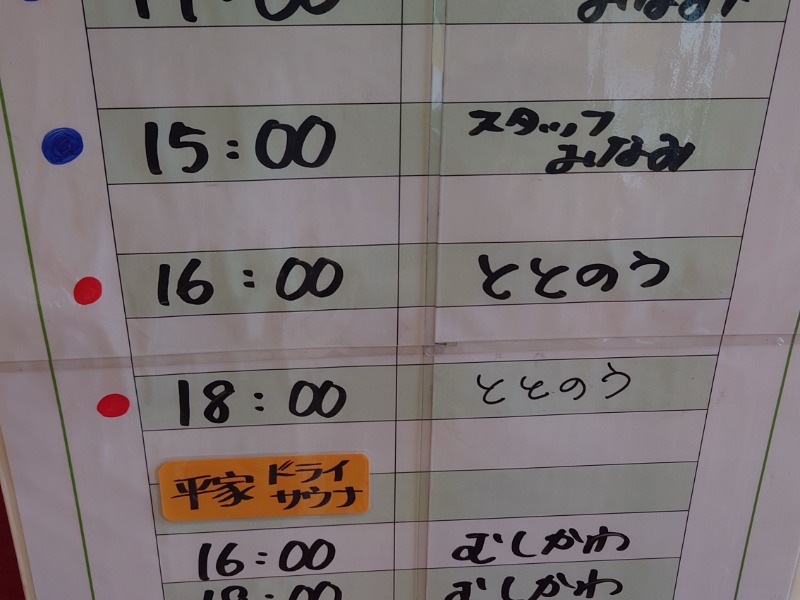 15:00 スタッフ
みなみ
16:00 ととのう
18:00 ととのう
平家 ドライ
サウナ
16:00 むしかわ
18:00 むしかわ